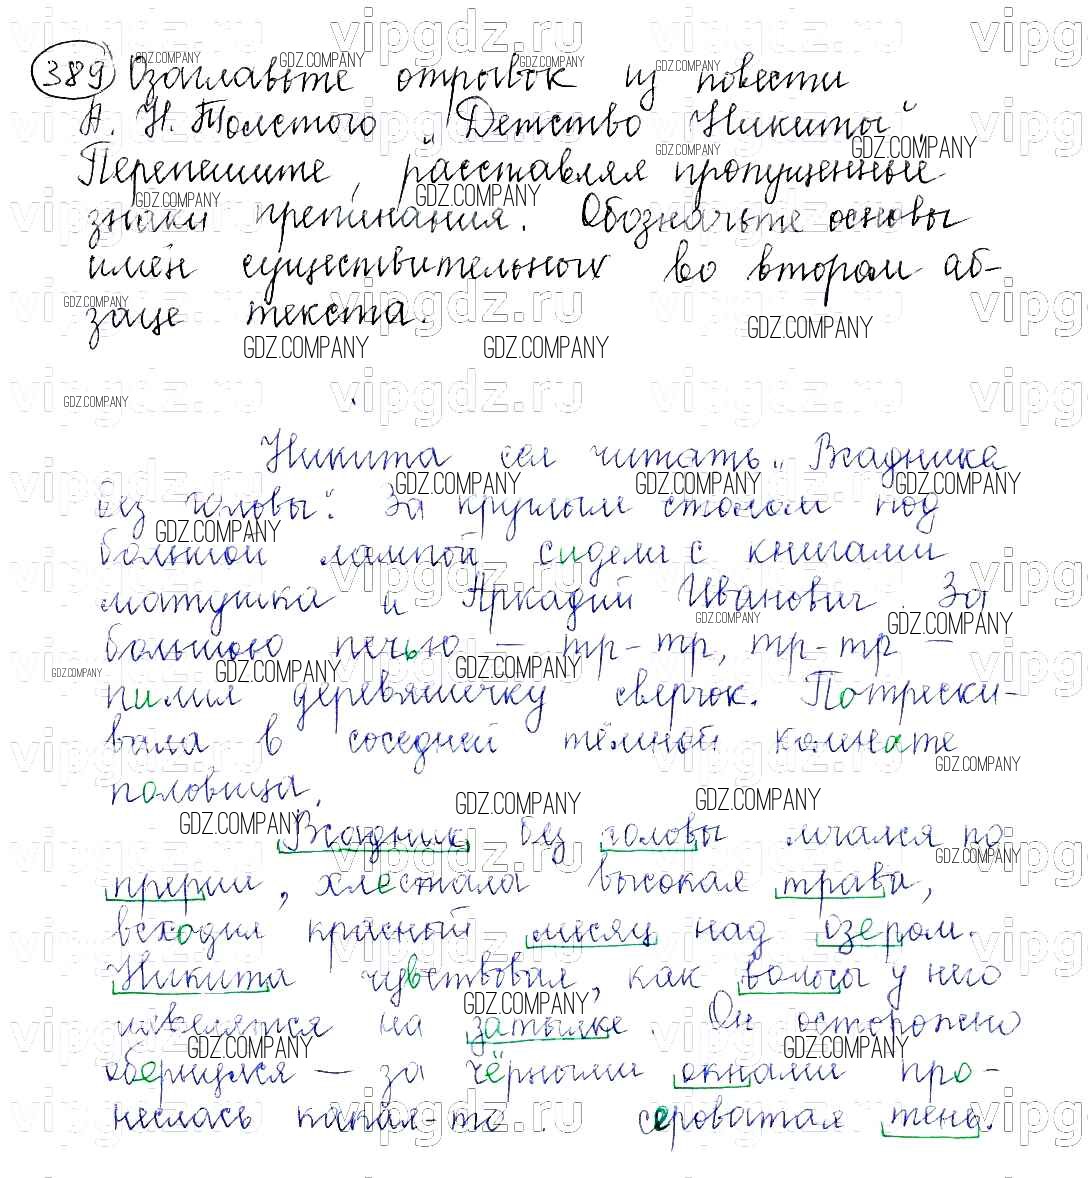 389 Озаглавьте отрывок из повести
А. Н. Толстого „Детство Никиты".
Перепешите, расставляя пропущенные
знаки препинания. Обозначьте основы
имён существительных во втором аб-
заце текста.
Никита сел читать „Всадника
без головы". За круглым столом под
большой лампой сидели с книгами
матушка и Аркадий Иванович. За
большою печью — тр-тр, тр-тр —
пилил деревяшечку сверчок. Потрески-
вала в соседней тёмной комнате
половица.
Всадник без головы мчался по
прерии, хлестала высокая трава,
всходил красный месяц над озером.
Никита чувствовал, как волосы у него
шевелятся на затылке. Он осторожно
обернулся — за чёрными окнами про-
неслась какая-то сероватая тень.